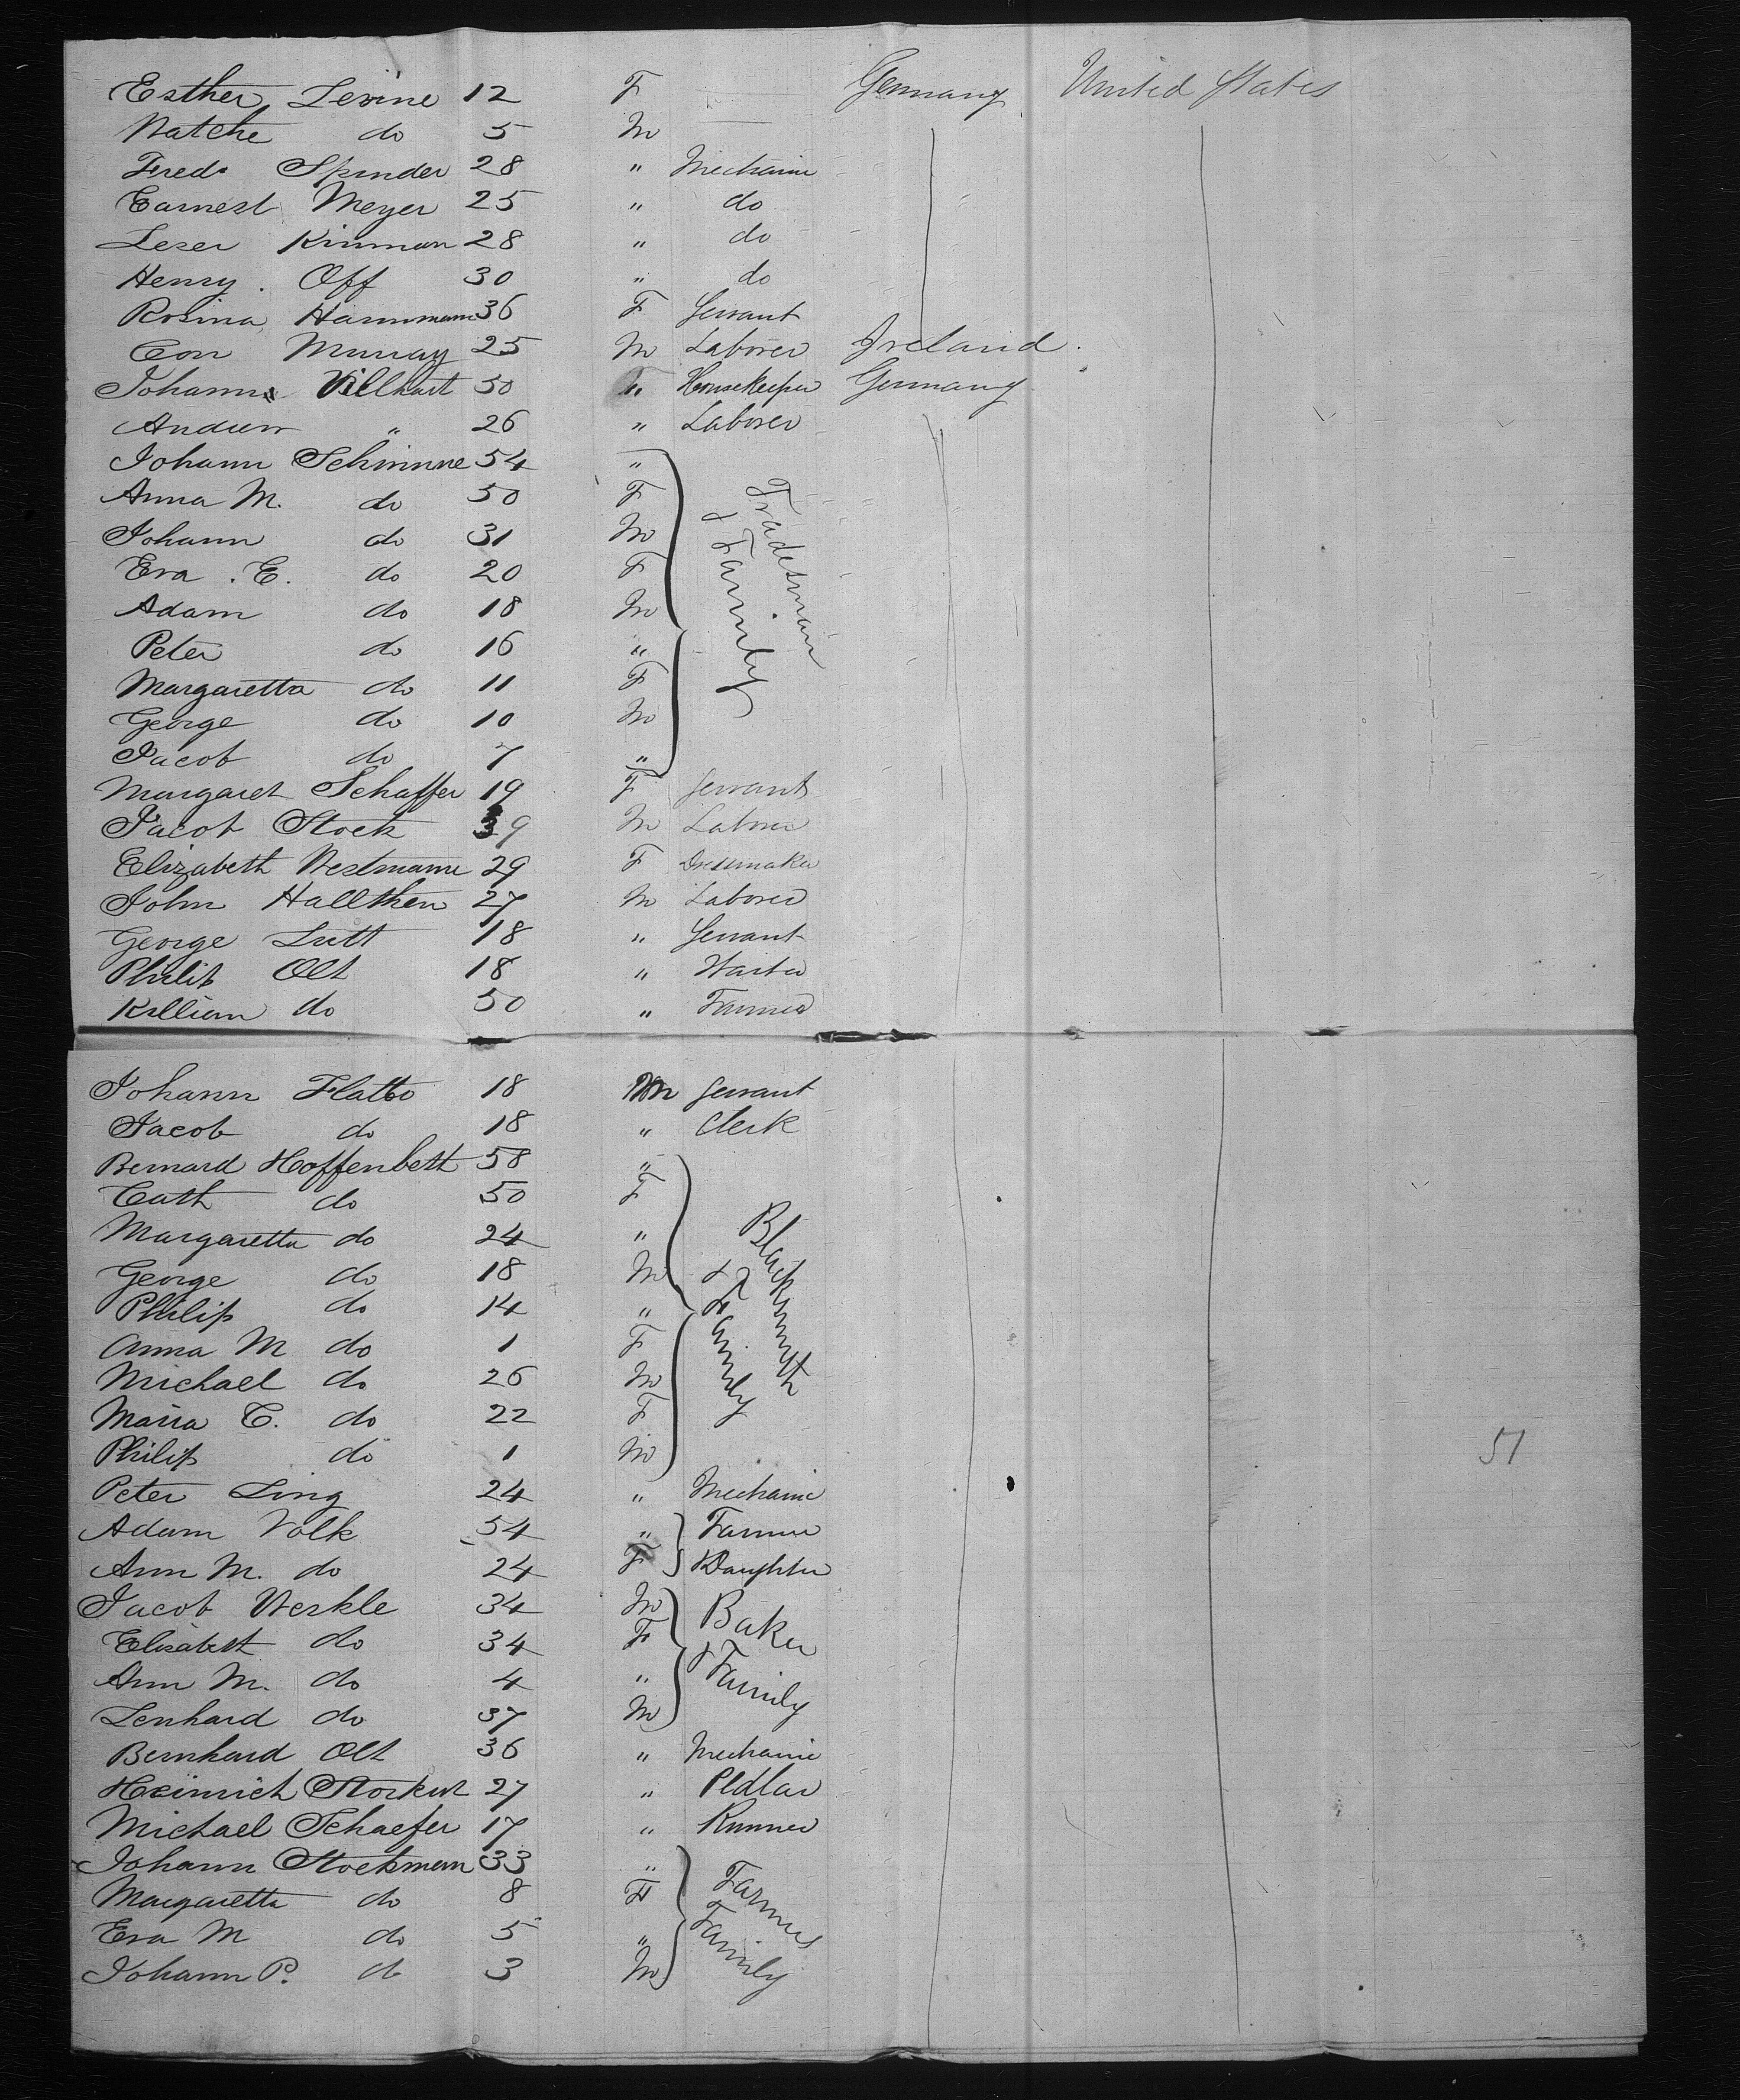 Esther Levine 12 F Germany United States
Natche do 5 M
Fred. Spinder 28 " Mechanic
Earnest Meyer 25 " do
Leser Kinman 28 " do
Henry Off 30 " do
Rosina Hammann 36 F Servant
Con Murray 25 M Laborer Ireland.
Johanna Villhart 50 " Housekeeper Germany
Andrew " 26 " Laborer
Johann Schimme 54 " Tradesman & Family
Anna M. do 50 F
Johann do 31 M
Eva E. do 20 F
Adam do 18 M
Peter do 16 "
Margaretta do 11 F
George do 10 M
Jacob do 7 "
Margaret Schaffer 19 F Servant
Jacob Stock 39 M Laborer
Elizabeth Westmann 29 F Dressmaker
John Hallthen 27 M Laborer
George Lutt 18 " Servant
Philip Olt 18 " Waiter
Killian do 50 " Farmer
Johann Flatto 18 M Servant
Jacob do 18 " Clerk
Bernard Hoffenbett 58 " Blacksmith & Family
Cath do 50 F
Margaretta do 24 "
George do 18 M
Philip do 14 "
Anna M do 1 F
Michael do 26 M
Maria C. do 22 F
Philip do 1 M 51
Peter Ling 24 " Mechanic
Adam Volk 54 " Farmer
Ann M. do 24 F & Daughter
Jacob Werkle 34 M Baker
Elisabeth do 34 F & Family
Ann M. do 4 "
Lenhard do 37 M
Bernhard Olt 36 " Mechanic
Heinrich 27 " Pedlar
Michael Schaefer 17 " Runner
Johann Stockman 33 " Farmers Family
Margaretta do 8 F
Eva M do 5 "
Johann P. do 3 M